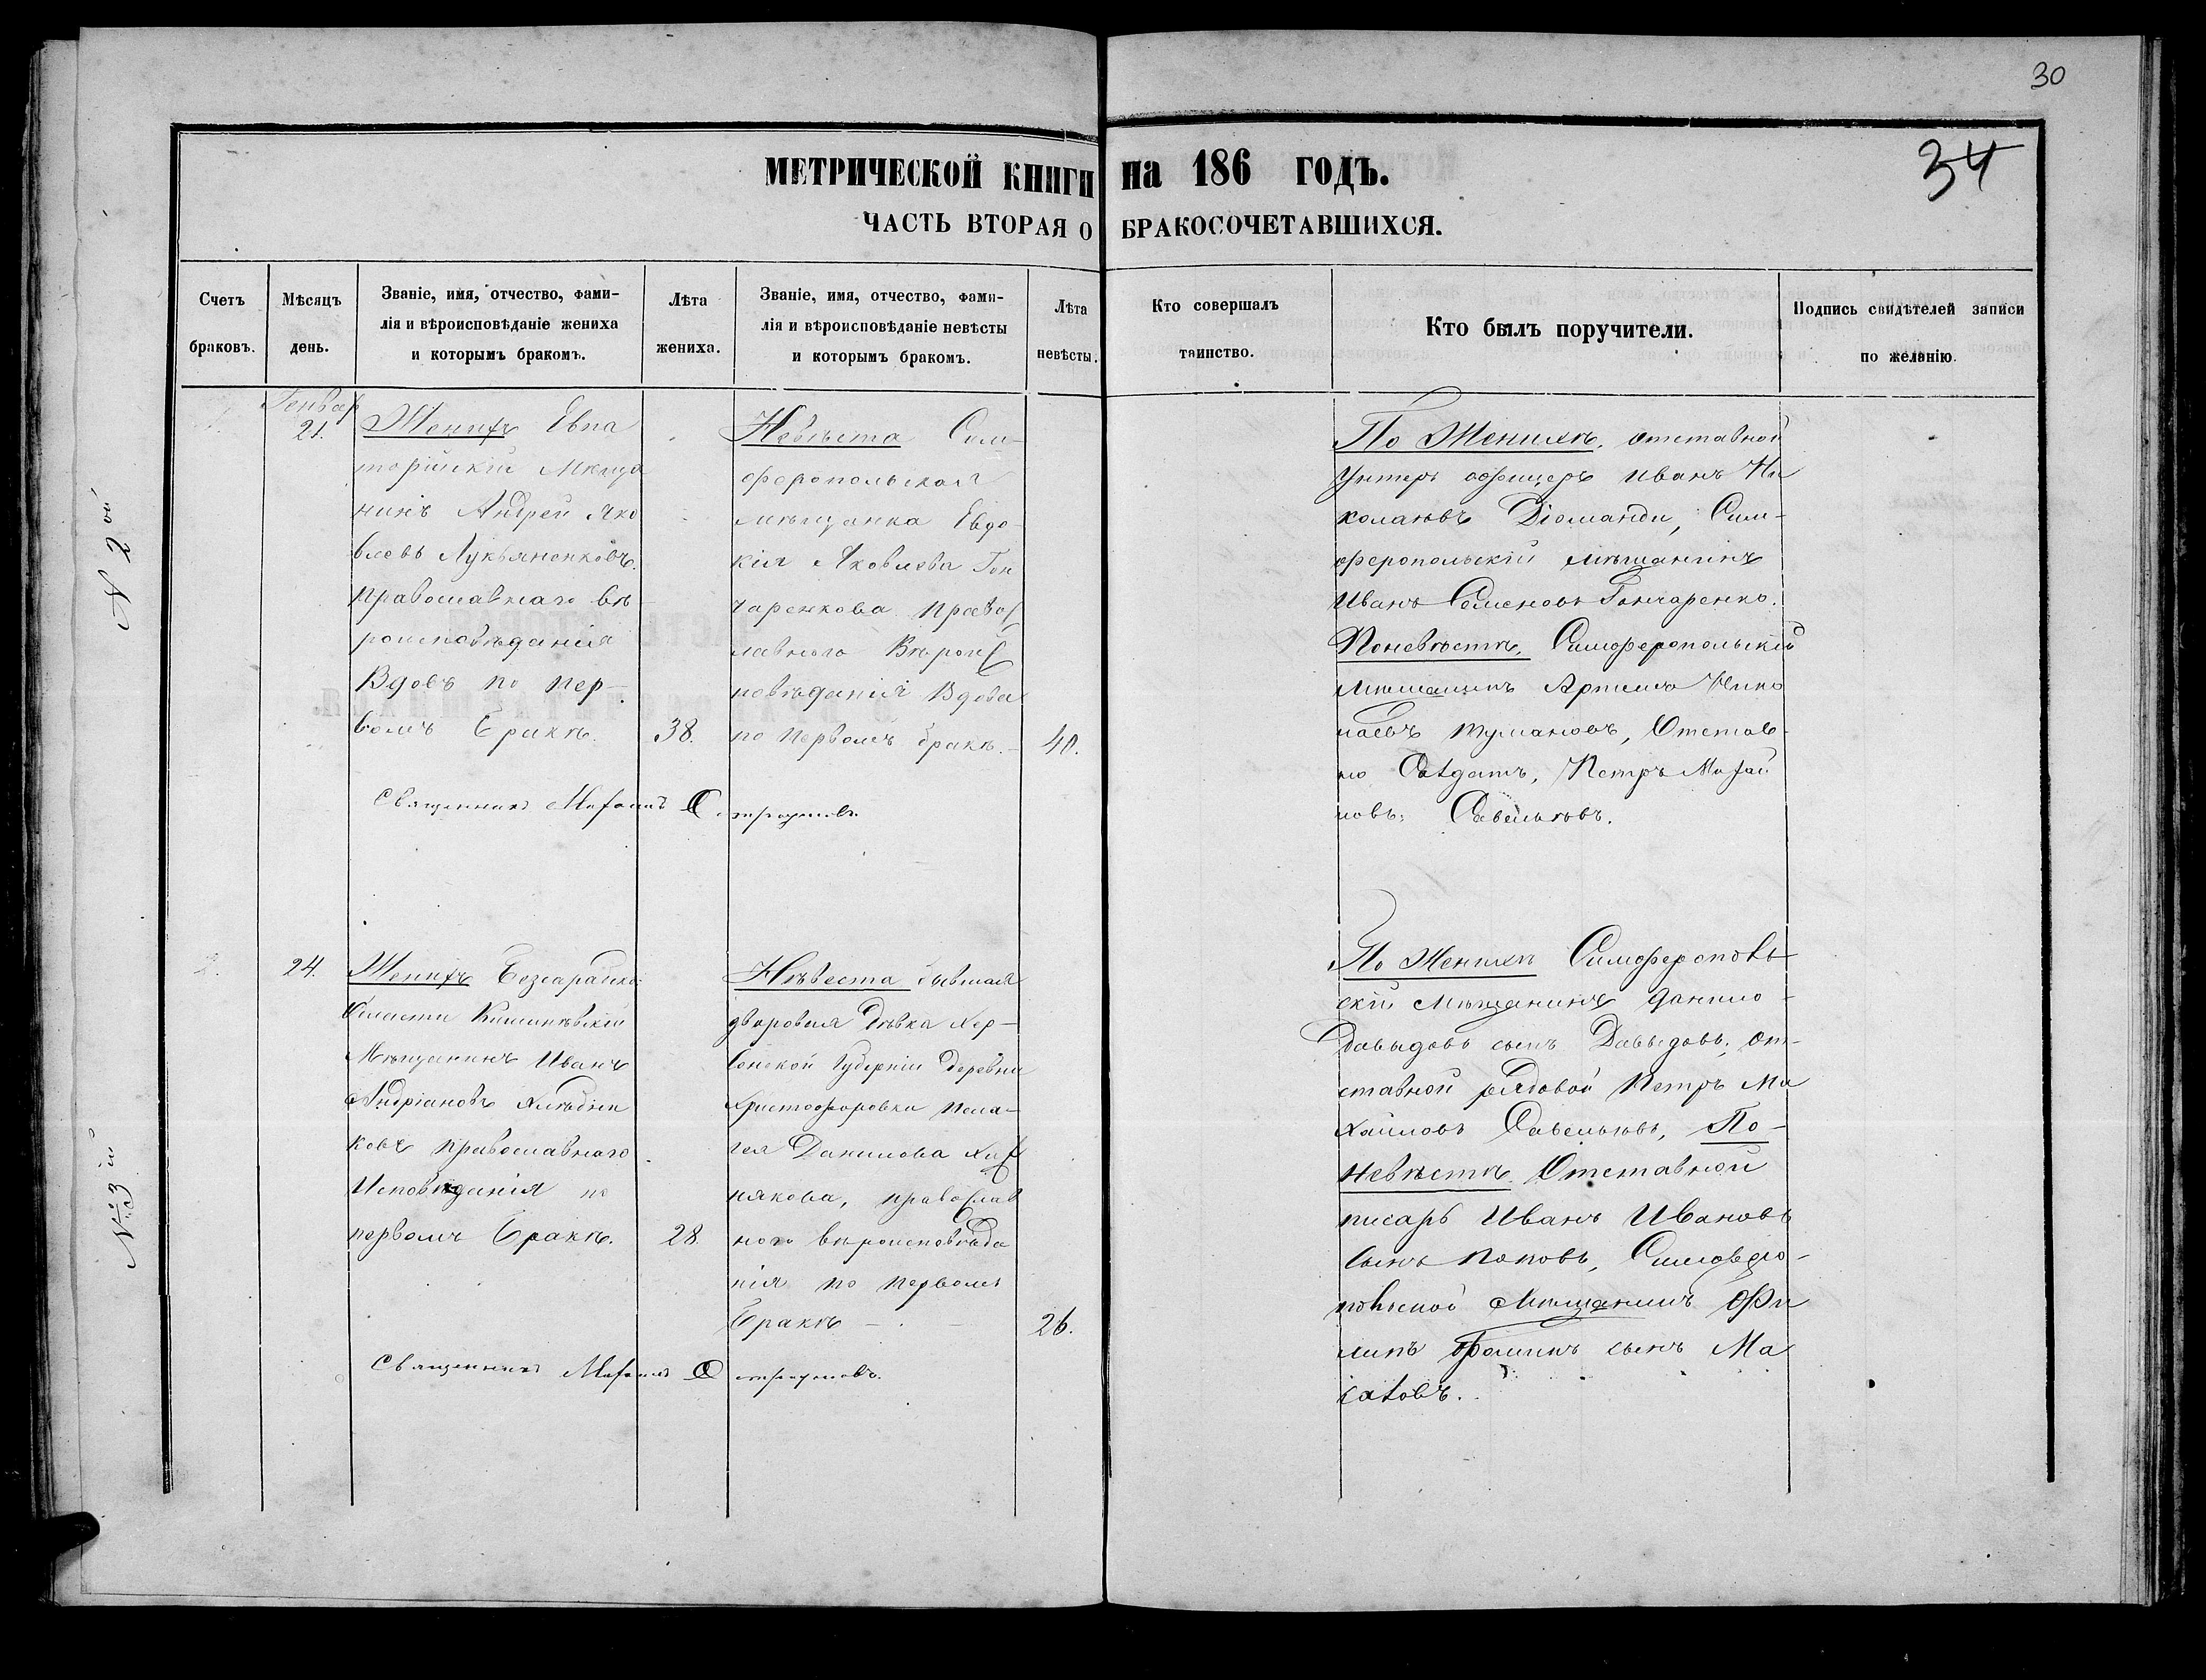 30
34
МЕТРИЧЕСКОЙ КНИГИ на 186 ГОДЪ.
ЧАСТЬ ВТОРАЯ О БРАКОСОЧЕТАВШИХСЯ.
Счетъ
браковъ.
Мѣсяцъ
день.
Званіе, имя, отчество, фами-
лія и вѣроисповѣданіе жениха
и которымъ бракомъ.
Лѣта
жениха.
Званіе, имя, отчество, фами-
лія и вѣроисповѣданіе невѣсты
и которымъ бракомъ.
Лѣта
невѣсты.
Кто совершалъ
таинство.
Кто былъ поручители.
Подпись свидѣтелей записи
по желанію.
N 2 ой
Генвар
21.
Женихъ Евпа
торійскій Мѣща
нинъ Андрей Яко
влевъ Лукьяненковъ.
Православнаго вѣ
роисповѣданія
Вдовъ по пер-
вомъ бракѣ.
38.
Невѣста Сим-
феропольская
мѣщанка Евдо
кія Яковлева Гон
чаренкова Правос
лавного Вѣроис
повѣданія Вдова
по первомъ бракѣ.
40.
Священникъ
По Женихѣ. отставной
Унтеръ офицеръ Иванъ Ни
колаевъ Діоманди, Сим-
феропольскій мѣщанинъ
Иванъ Семеновъ Гончаренко.
Поневѣстѣ. Симферопольскій
Мѣщанинъ Артемъ Нико
лаевъ Тумановъ, Отстав-
но Солдатъ, Петръ Михай
ловъ Савельевъ.
N: 3 ій
2.
24.
Женихъ Безсарабско
Области Кишинѣвскій
Мѣщанинъ Иванъ
Андріановъ Хлѣбни
ковъ православнаго
Исповѣданія по
первомъ бракѣ.
28.
Нѣвеста бывшая
дворовая Дѣвка Хер-
сонской Губерніи деревни
Христофоровки Пела-
гея Данилова
православ
ного вѣроисповѣда
нія по первомъ
бракѣ
26.
Священникъ
По Женихѣ Симферополь
скій Мѣщанинъ Данило
Давыдовъ сынъ Давыдовъ; От-
ставной рядовой Петръ Ми
хайловъ Савельевъ, По-
невѣстѣ. Отставной
писарь Иванъ Ивановъ
сынъ Поповъ, Симферо-
польской Мѣщанинъ Фи
липъ Фоминъ сынъ Ма